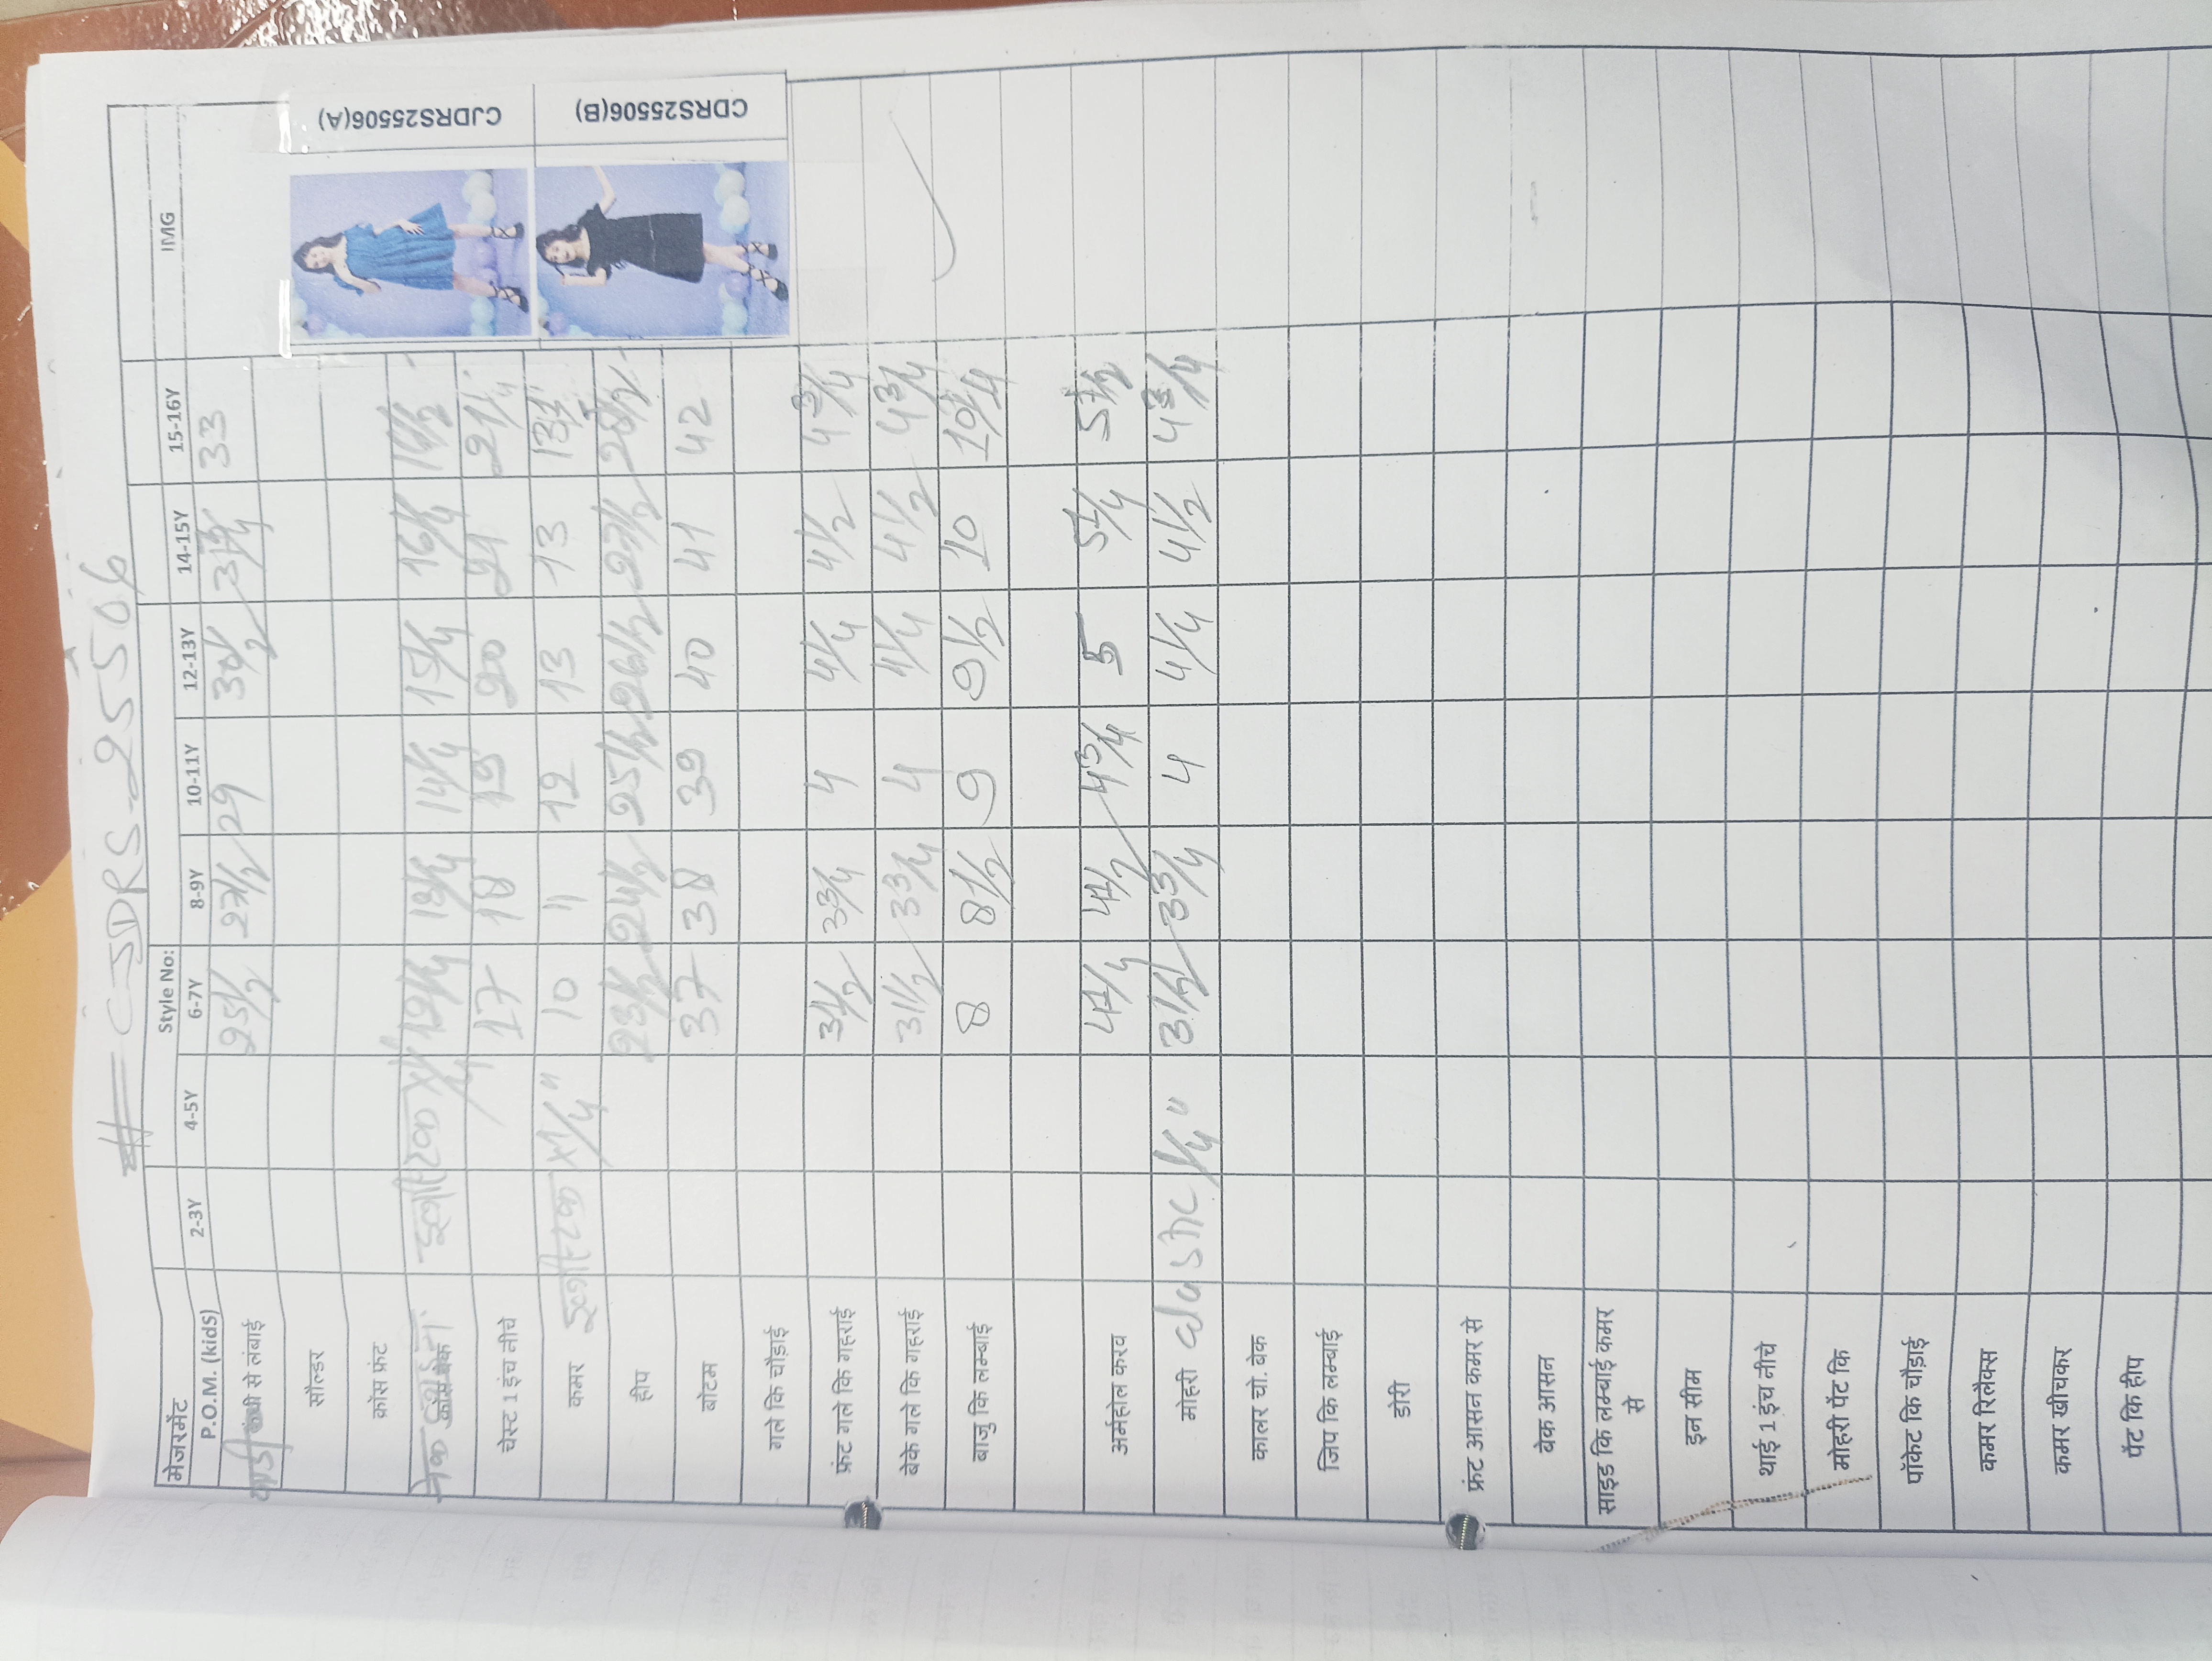 # CJDRS-25506
मेजरमेंट Style No: IMG
P.O.M. (kidS) 2-3Y 4-5Y 6-7Y 8-9Y 10-11Y 12-13Y 14-15Y 15-16Y
कंधी से लंबाई 25 1/2 27 1/2 29 30 1/2 33
सौल्डर
क्रॉस फ्रंट
क्रॉस बेक इलास्टिक 14 1/4 15 1/4 16 1/4
चेस्ट 1 इंच नीचे 17 18 19 20 21
कमर इलास्टिक x 1/4" 10 11 12 13 13
हीप 23 1/2 24 1/2 25 1/2 26 1/2 27 1/2
बोटम 37 38 39 40 41 42
गले कि चौड़ाई
फ्रंट गले कि गहराई 3 1/2 3 3/4 4 4 1/4 4 1/2 4 3/4
बेके गले कि गहराई 3 1/2 3 3/4 4 4 1/4 4 1/2 4 3/4
बाजु कि लम्बाई 8 8 1/2 9 9 1/2 10
अर्महोल करव 4 1/4 4 1/2 4 3/4 5 5 1/4 5 1/2
मोहरी elastic 1/4" 3 1/2 3 3/4 4 4 1/4 4 1/2 4 3/4
कालर चो. बेक
जिप कि लम्बाई
डोरी
फ्रंट आसन कमर से
बेक आसन
साइड कि लम्बाई कमर
से
इन सीम
थाई 1 इंच नीचे
मोहरी पेंट कि
पॉकेट कि चौड़ाई
कमर रिलैक्स
कमर खीचकर
पेंट कि हीप
CJDRS25506(A)
CDRS25506(B)